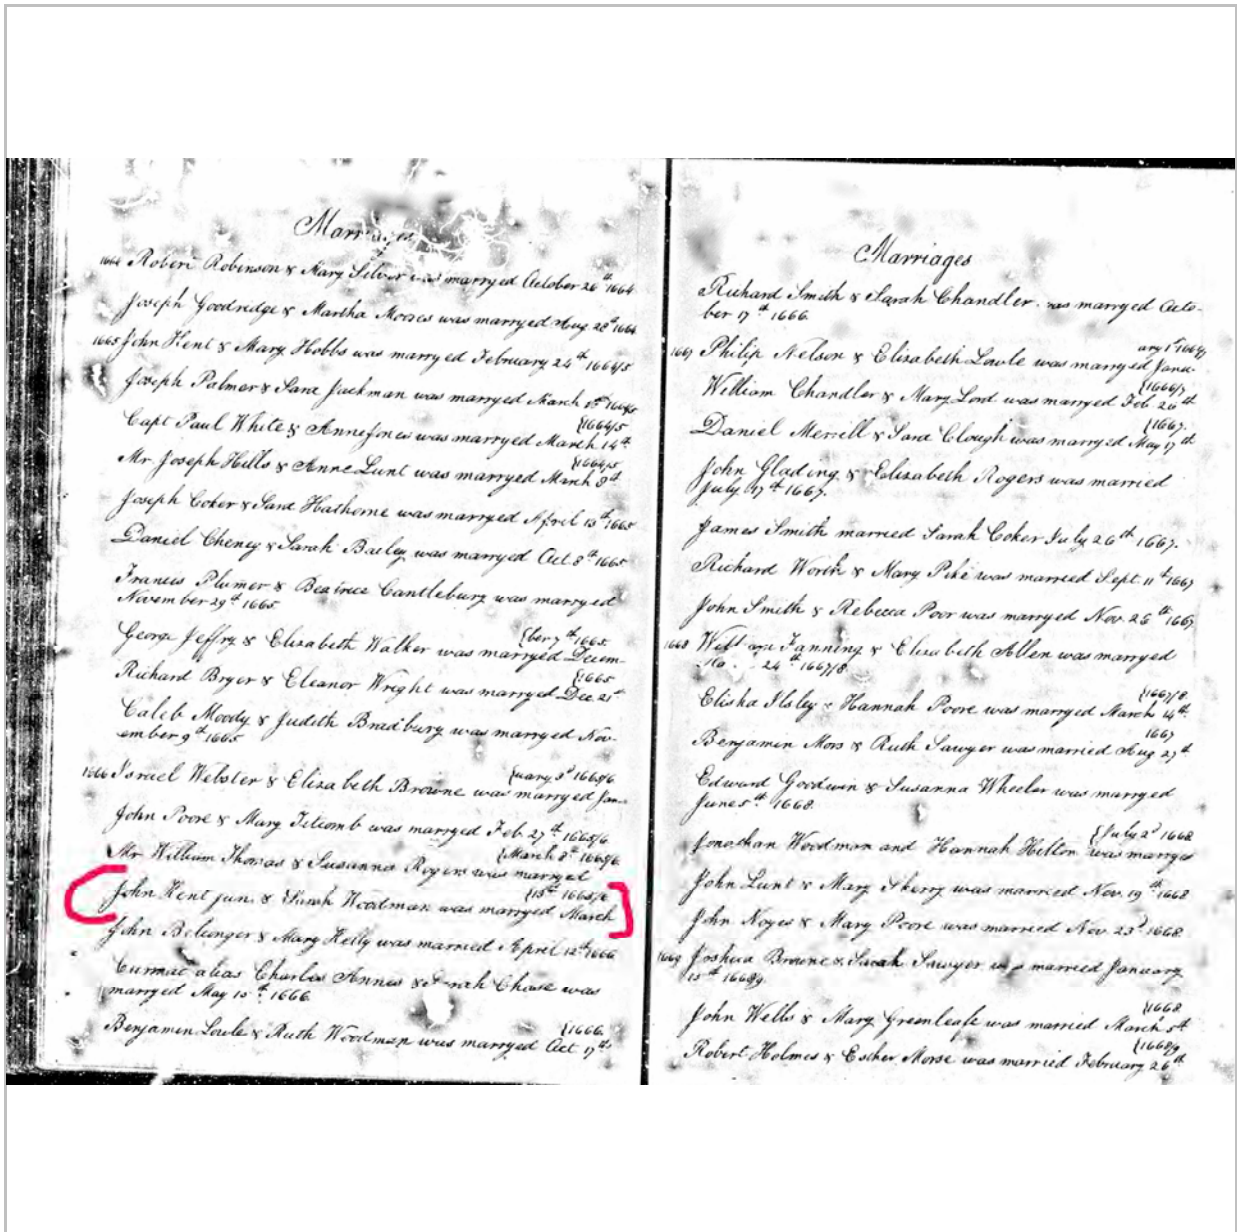 Marriages
1664 Robert Robinson & Mary Silver was marryed October 26th 1664
Joseph Goodridge & Martha Moores was marryed Aug 28th 1664
1665 John Kent & Mary Hobbs was marryed February 24th 1664/5
Joseph Palmer & Sara Jackman was marryed March 1st 1664/5
{1664/5
Capt Paul White & Anne Jones was marryed March 14th
{1664/5
Mr Joseph Hills & Anne Lunt was marryed March 8th
Joseph Coker & Sara Hathorne was marryed April 13th 1665
Daniel Cheney & Sarah Bayley was marryed Oct 8th 1665
Francis Plumer & Beatrice Cantlebury was marryed
November 29th 1665
{ber 7th 1665
George Jeffry & Elizabeth Walker was marryed Decem-
{1665
Richard Bryer & Eleanor Wright was marryed Dec. 21st
Caleb Moody & Judith Bradbury was marryed Nov-
ember 9th 1665
{uary 3d 1665/6
1666 Israel Webster & Elizabeth Browne was marryed Jan-
John Poore & Mary Titcomb was marryed Feb. 27th 1665/6
{March 8th 1665/6
Mr William Thomas & Susanna Rogers was marryed
{13th 1665/6
John Kent jun. & Sarah Woodman was marryed March
John Belenger & Mary Kelly was married April 12th 1666
Curmac alias Charles Annes & Sarah Chase was
marryed May 15th 1666
{1666
Benjamin Lowle & Ruth Woodman was marryed Oct 17th
Marriages
Richard Smith & Sarah Chandler was marryed Octo-
ber 17th 1666
ary 1st 1666/7
1667 Philip Nelson & Elizabeth Lowle was marryed Janu-
{1666/7
William Chandler & Mary Lord was marryed Feb. 26th
{1667.
Daniel Merrill & Sara Clough was marryed May 17th
John Glading & Elizabeth Rogers was married
July 17th 1667.
James Smith married Sarah Coker July 26th 1667.
Richard Worth & Mary Pike was married Sept. 11th 1667
John Smith & Rebecca Poor was marryed Nov. 26th 1667
1668 William Fanning & Elizabeth Allen was marryed
24th 1667/8
{1667/8
Elisha Ilsley & Hannah Poore was marryed March 14th
1667
Benjamin Mors & Ruth Sawyer was married Aug 27th
Edward Goodwin & Susanna Wheeler was marryed
June 5th 1668
{July 2d 1668
Jonathan Woodman and Hannah Hilton was marryed
John Lunt & Mary Skerry was marryed Nov. 19th 1668
John Noyes & Mary Poore was married Nov. 23d 1668
1669 Joshua Browne & Sarah Sawyer was married January
15th 1668/9
{1668
John Wells & Mary Greenleafe was married March 5th
{1668/9
Robert Holmes & Esther Morse was married February 26th